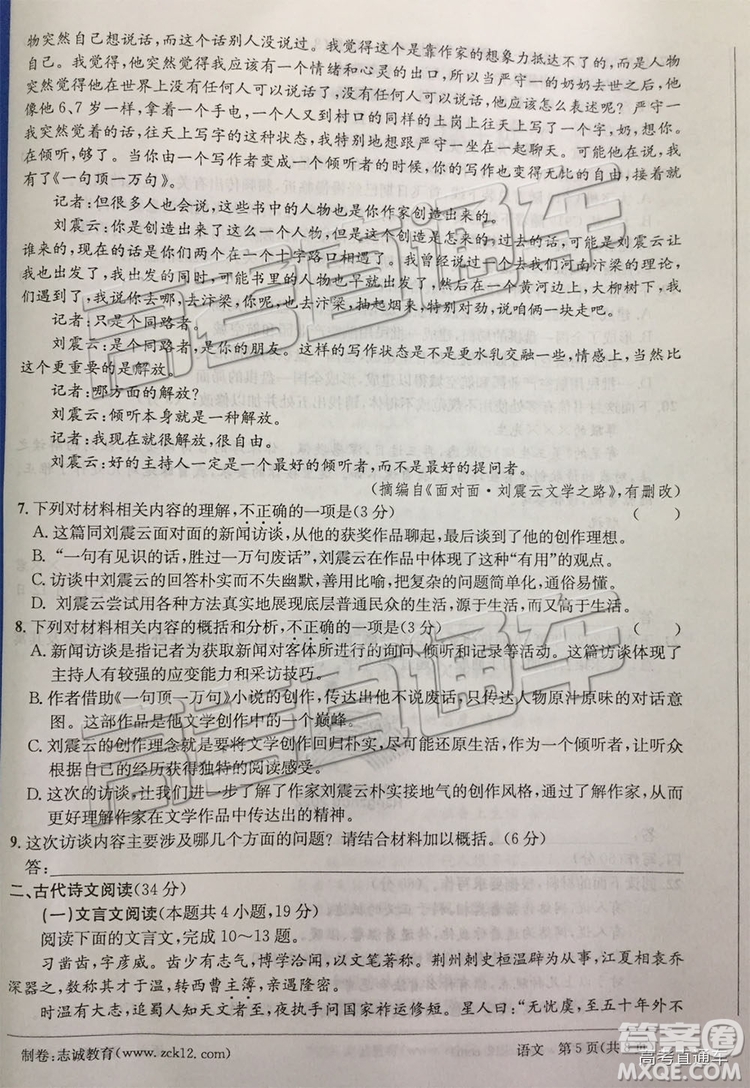 物突然自己想说话,而这个话别人没说过。我觉得这个是靠作家的想象力抵达不了的,而是人物
自己。我觉得,他突然觉得我应该有一个情绪和心灵的出口,所以当严守一的奶奶去世之后,他
突然觉得他在世界上没有任何人可以说话了,没有任何人可以说话,他应该怎么表述呢?严守一
像他6、7岁一样,拿着一个手电,一个人又到村口的同样的土岗上往天上写了一个字,奶,奶。但
我突然觉着的话,往天上写字的这种状态,我特别想跟严守一坐在一起聊天。可能他在说,可能我
在倾听,可能。当你由一个写作者变成一个倾听者的时候,你的写作发生了特别大的变化,所以就
有了《一句顶一万句》。
记者:但很多人也会说,这些书中的人物也是你作家创造出来的。
刘震云:你是创造出来了这么一个人物,但是当这个人物变成一个起来的时候,
谁来的,现在的话是你们两个在一个十字路口相遇了。我曾经说过一个去我们河南汴梁的理论,
我也出发了,出发的同时,可能书里的人物也早就出发了,然后在一个黄河边上,大柳树下,我
们遇到了,我说你去哪,去汴梁,你呢,也去汴梁,抽起烟来,特别对劲,说的咱俩一块走吧。
记者:只是个同路者。
刘震云:当是个同路者,是你的朋友。这样的写作状态,可能不是更水乳交融一些,情感上,当然比
这个更重要的是解放。
记者:哪方面的解放?
刘震云:倾听本身就是一种解放。
记者:我现在就很解放,很自由。
刘震云:好的主持人一定是一个最好的倾听者,而不是最好的提问者。
(摘编自《面对面·刘震云文学之路》,有删改)
7. 下列对材料相关内容的理解,不正确的一项是(3分) ( )
A. 这篇同刘震云面对面的新闻访谈,从他的获奖作品聊起,最后谈到了他的创作理想。
B. “一句有见识的话,胜过一万句废话”,刘震云在作品中体现了这种“有用”的观点。
C. 访谈中刘震云的回答朴实而不失幽默,善用比喻,把复杂的问题简单化,通俗易懂。
D. 刘震云尝试用各种方法真实地展现底层普通民众的生活,源于生活,而高于生活。
8. 下列对材料相关内容的概括和分析,不正确的一项是(3分) ( )
A. 新闻访谈是指记者为获取新闻对客体所进行的询问、倾听和记录等活动。这篇访谈体现了
主持人有较强的应变能力和采访技巧。
B. 作者借助《一句顶一万句》小说的创作,传达出他不说废话,只传达人物原汁原味的对话意
图。这部作品是他文学创作中的一个巅峰。
C. 刘震云的创作理念就是要将文学创作回归朴实,尽可能还原生活,作为一个倾听者,读者可
根据自己的经历获得独特的阅读感受。
D. 这次的访谈,能让读者更好地了解作家刘震云朴实接地气的创作风格,了解他的生活,从而
更好理解作者在文学作品中传达出的精神。
9. 这次访谈内容主要涉及哪几个方面的问题?请结合材料加以概括。(6分)
答:
二、古代诗文阅读(34分)
(一)文言文阅读(本题共4小题,19分)
阅读下面的文言文,完成10~13题。
习凿齿,字彦威。齿少有志气,博学洽闻,以文笔著称。荆州刺史桓温辟为从事,江夏相袁乔
深器之,数称其才于温,转西曹主簿,亲遇隆密。
时温有大志,追蜀人知天文者至,夜执手问国家祚运修短。星人曰:“无忧虞,至五十年外不
制卷:志诚教育(www.zck12.com)
语文 第5页(共
高考直通车
高考直通车
答案圈
高考直通车
MXQE.COM